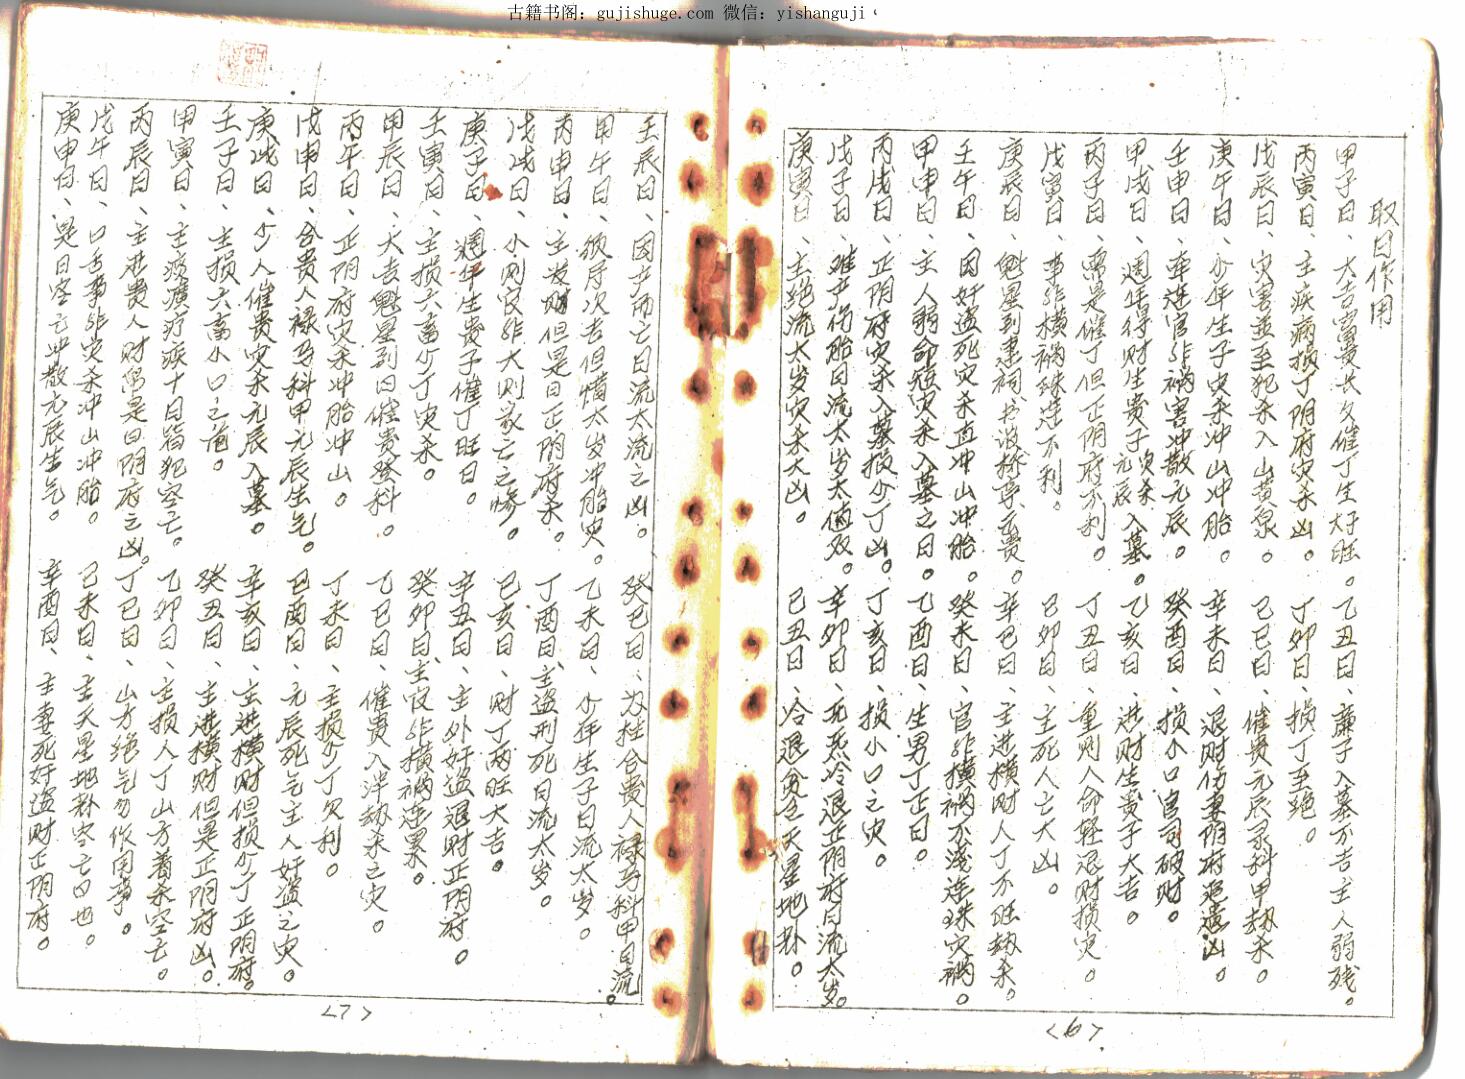 古籍书阁：gujishuge.com 微信：yishanguji
取日作用
甲子日、大吉富贵长久催丁生大旺。乙丑日、廉子入墓不吉主人弱残。
丙寅日、主疾病损丁阴府灾杀凶。丁卯日、损丁至绝。
戊辰日、灾害并至犯杀入山黄泉。己巳日、催贵元辰录科甲劫杀。
庚午日、少年生子灾杀冲山冲胎。辛未日、退财伤妻阴府凶。
壬申日、牵连官非祸害冲散元辰。癸酉日、损小口官司破财。
甲戌日、週年得财生贵子灾杀元辰入墓。乙亥日、进财生贵子大吉。
丙子日、虽是催丁但正阴府不利。丁丑日、重则人命轻退财损灾。
戊寅日、事非横祸珠连不利。己卯日、主死人亡大凶。
庚辰日、魁星到建祠、书波桥亭、至贵。辛巳日、主进横财人丁不旺劫杀。
壬午日、因奸盗死灾杀直冲山冲胎。癸未日、官非横祸不浅连珠灾祸。
甲申日、主人弱命短灾杀入墓之日。乙酉日、生男丁正日。
丙戌日、正阴府灾杀入墓损少丁凶。丁亥日、损小口之灾。
戊子日、难产伤胎日流太岁太值双。辛卯日、冷退正阴府日流太岁。
庚寅日、主绝流太岁灾杀大凶。己丑日、冷退天星地卦。
<6>
壬辰日、因产而亡日流太流之凶。癸巳日、为挂合贵人禄马科甲日流。
甲午日、彼序次去但惜太岁冲胎灾。乙未日、少年生子日流太岁。
丙申日、主发财但是日正阴府杀。丁酉日、主盗刑死日流太岁。
戊戌日、小则官非大则家亡之惨。己亥日、财丁两旺大吉。
庚子日、週年生贵子催丁旺日。辛丑日、主外奸盗退财正阴府。
壬寅日、主损六畜少丁灾杀。癸卯日、主官非横祸连累。
甲辰日、大吉魁星到日催贵登科。乙巳日、催贵入泮劫杀之灾。
丙午日、正阴府灾杀冲胎冲山。丁未日、主损少丁欠利。
戊申日、合贵人禄马科甲元辰生气。己酉日、元辰死气主人奸盗之灾。
庚戌日、少人催贵灾杀元辰入墓。辛亥日、主进横财但损少丁正阴府。
壬子日、主损六畜小口之道。癸丑日、主进横财但是正阴府凶。
甲寅日、主痨疾十日皆犯空亡。乙卯日、主损人丁山方着杀空亡。
丙辰日、主进贵人财禹是日阴府之凶。丁巳日、山方绝气勿作用事。
戊午日、口舌事非灾杀冲山冲胎。己未日、主天星地卦空亡日也。
庚申日、是日空亡冲散元辰生气。辛酉日、主妻死奸盗财正阴府。
<7>